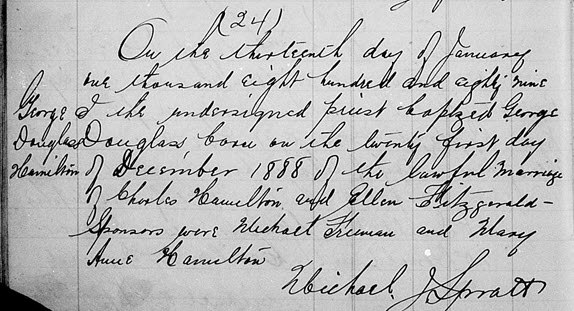 (24)
On the thirteenth day of January
one thousand eight hundred and eighty nine
George I the undersigned priest baptized George
Douglass Douglass born on the twenty first day
Hamilton of December 1888 of the lawful marriage
of Charles Hamilton and Ellen Fitzgerald -
Sponsors were Michael Freeman and Mary
Anne Hamilton
Michael J Spratt